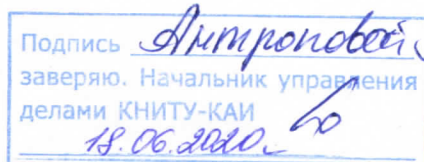 Подпись Антроповой
заверяю. Начальник управления
делами КНИТУ-КАИ
18.06.2020г